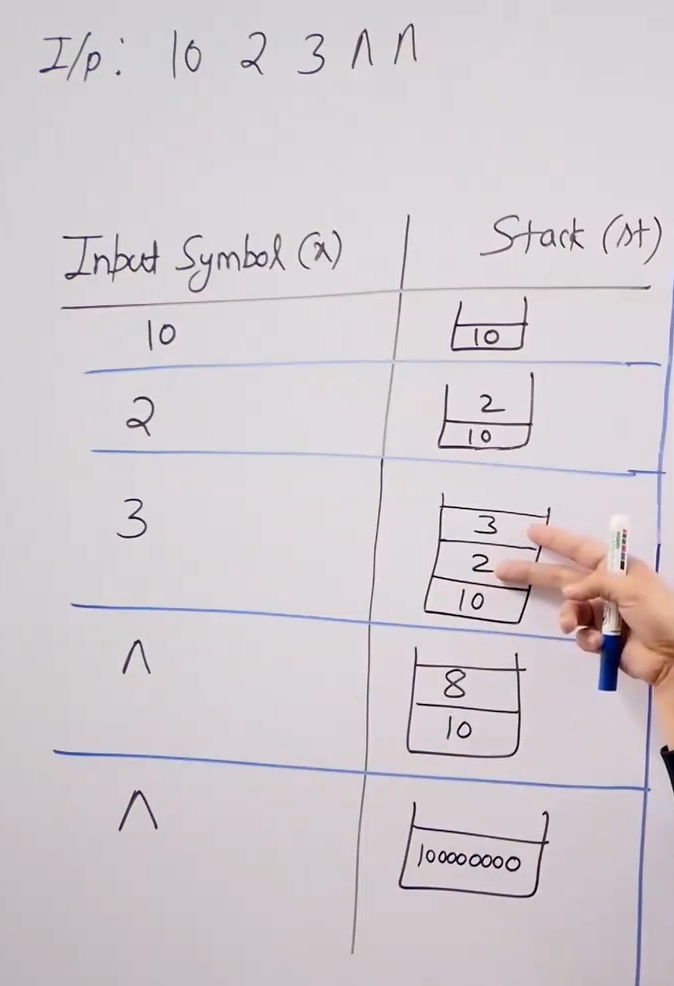 I/p: 10 2 3 ^ ^
Input Symbol (x) Stack (st)
10 10
2 2
10
3 3
2
10
^ 8
10
^ 100000000